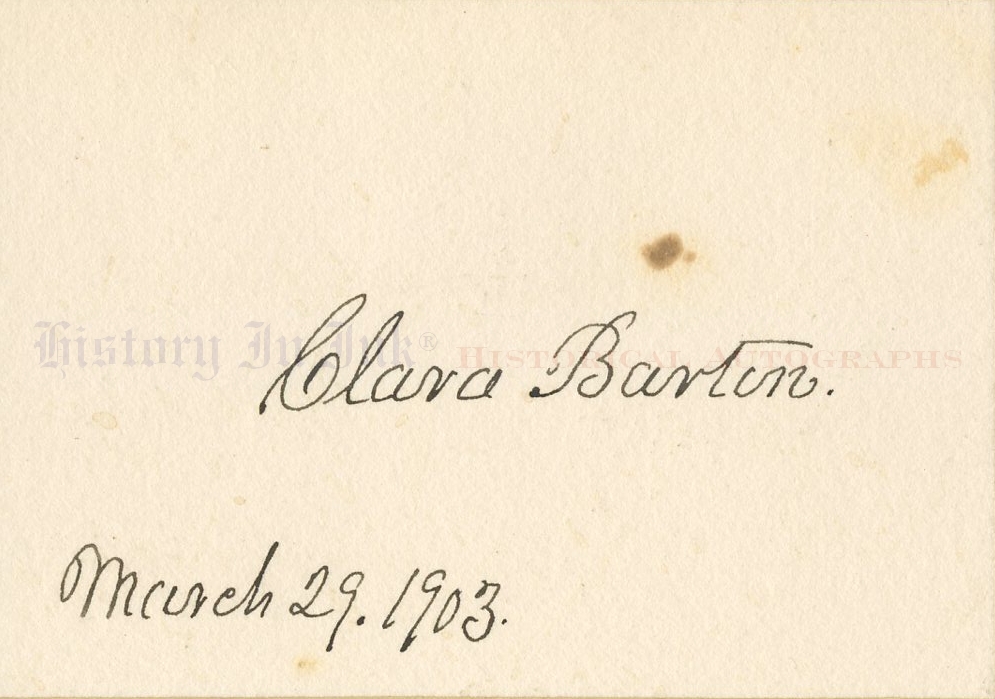 History In Ink® Historical Autographs
Clara Barton.
March 29. 1903.